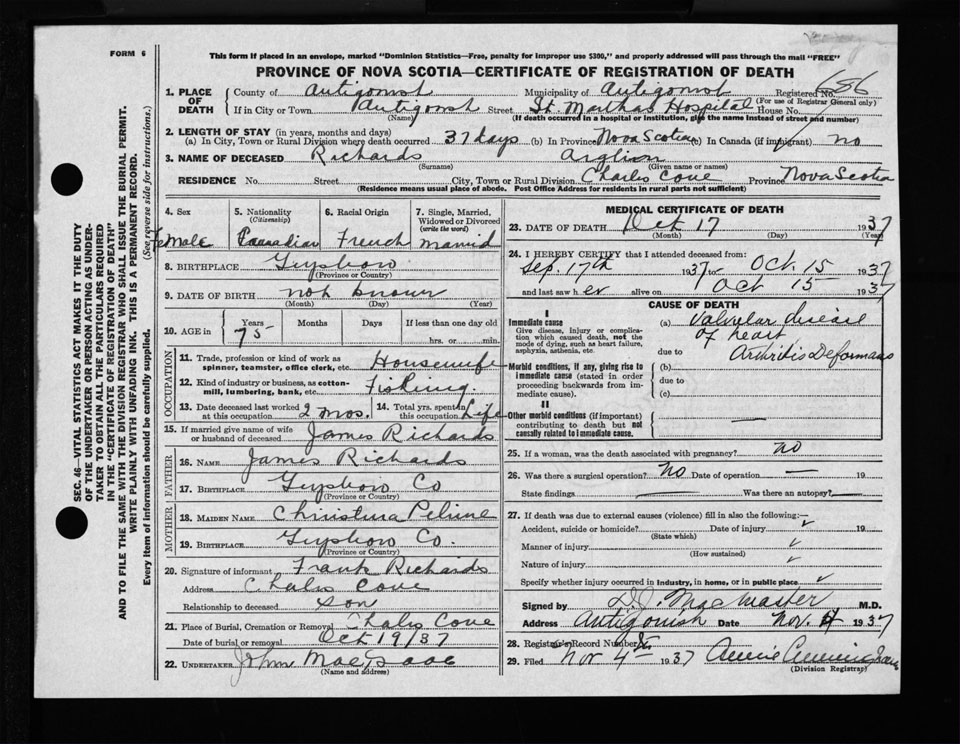 FORM 6
This form if placed in an envelope, marked "Dominion Statistics—Free, penalty for improper use $300," and properly addressed will pass through the mail "FREE"
PROVINCE OF NOVA SCOTIA—CERTIFICATE OF REGISTRATION OF DEATH
1. PLACE OF DEATH County of Antigonish Municipality of Antigonish Registered No. 686
(For use of Registrar General only)
If in City or Town Antigonish Street St. Marthas Hospital House No.
(Name) (If death occurred in a hospital or institution, give the name instead of street and number)
2. LENGTH OF STAY (in years, months and days)
(a) In City, Town or Rural Division where death occurred 37 days (b) In Province Nova Scotia (c) In Canada (if immigrant) no
3. NAME OF DECEASED Richards
(Surname) (Given name or names)
RESIDENCE No. Street City, Town or Rural Division Charlos Cove Province Nova Scotia
(Residence means usual place of abode. Post Office Address for residents in rural parts not sufficient)
4. Sex Female
5. Nationality (Citizenship) Canadian
6. Racial Origin French
7. Single, Married, Widowed or Divorced (write the word) married
8. BIRTHPLACE Guysboro
(Province or Country)
9. DATE OF BIRTH not known
(Month) (Day) (Year)
10. AGE in Years Months Days If less than one day old
75 hrs. or min.
OCCUPATION
11. Trade, profession or kind of work as spinner, teamster, office clerk, etc. Housewife
12. Kind of industry or business, as cotton-mill, lumbering, bank, etc. Fishing.
13. Date deceased last worked at this occupation 2 mos. 14. Total yrs. spent in this occupation Life
15. If married give name of wife or husband of deceased James Richards
FATHER
16. NAME James Richards
17. BIRTHPLACE Guysboro Co
(Province or Country)
MOTHER
18. MAIDEN NAME Christina
19. BIRTHPLACE Guysboro Co.
(Province or Country)
20. Signature of informant Frank Richards
Address Charlos Cove
Relationship to deceased son
21. Place of Burial, Cremation or Removal Charlos Cove
Date of burial or removal Oct 19/37
22. UNDERTAKER John MacIsaac
(Name and address)
MEDICAL CERTIFICATE OF DEATH
23. DATE OF DEATH Oct 17 1937
(Month) (Day) (Year)
24. I HEREBY CERTIFY that I attended deceased from:
Sep. 17th 1937 to Oct. 15 1937
and last saw her alive on Oct 15 1937
CAUSE OF DEATH
I
Immediate cause
Give disease, injury or complication which caused death, not the mode of dying, such as heart failure, asphyxia, asthenia, etc.
(a) Valvular disease of heart
due to Arthritis Deformans
Morbid conditions, if any, giving rise to immediate cause (stated in order proceeding backwards from immediate cause).
(b)
due to
(c)
II
Other morbid conditions (if important) contributing to death but not causally related to immediate cause.
25. If a woman, was the death associated with pregnancy? no
26. Was there a surgical operation? No Date of operation — 19
State findings Was there an autopsy?
27. If death was due to external causes (violence) fill in also the following:—
Accident, suicide or homicide? Date of injury 19
(State which)
Manner of injury
(How sustained)
Nature of injury
Specify whether injury occurred in industry, in home, or in public place
Signed by MacMaster M.D.
Address Antigonish Date Nov. 4 1937
28. Registrar's Record Number
29. Filed Nov 4th 1937 Annie
(Division Registrar)
SEC. 46—VITAL STATISTICS ACT MAKES IT THE DUTY
OF THE UNDERTAKER OR PERSON ACTING AS UNDER-
TAKER TO OBTAIN ALL THE PARTICULARS REQUIRED
IN THE "CERTIFICATE OF REGISTRATION OF DEATH"
AND TO FILE THE SAME WITH THE DIVISION REGISTRAR WHO SHALL ISSUE THE BURIAL PERMIT.
WRITE PLAINLY WITH UNFADING INK. THIS IS A PERMANENT RECORD.
Every item of information should be carefully supplied. (See reverse side for instructions.)